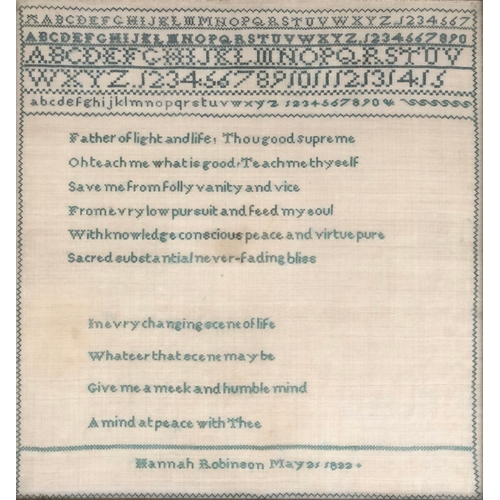 ABCDEFGHIJKLMNOPQRSTUVWXYZ,1234567
ABCDEFGHIJKLMNOPQRSTUVWXYZ,1234567890
ABCDEFGHIJKLMNOPQRSTUV
WXYZ,123456789101112131415
abcdefghijklmnopqrstuvwxyz 1234567890
Father of light and life, Thou good supreme
Oh teach me what is good, Teach me thyself
Save me from folly vanity and vice
From evry low pursuit and feed my soul
With knowledge conscious peace and virtue pure
Sacred substantial never-fading bliss
In evry changing scene of life
Whateer that scene may be
Give me a meek and humble mind
A mind at peace with Thee
Hannah Robinson May 21 1822